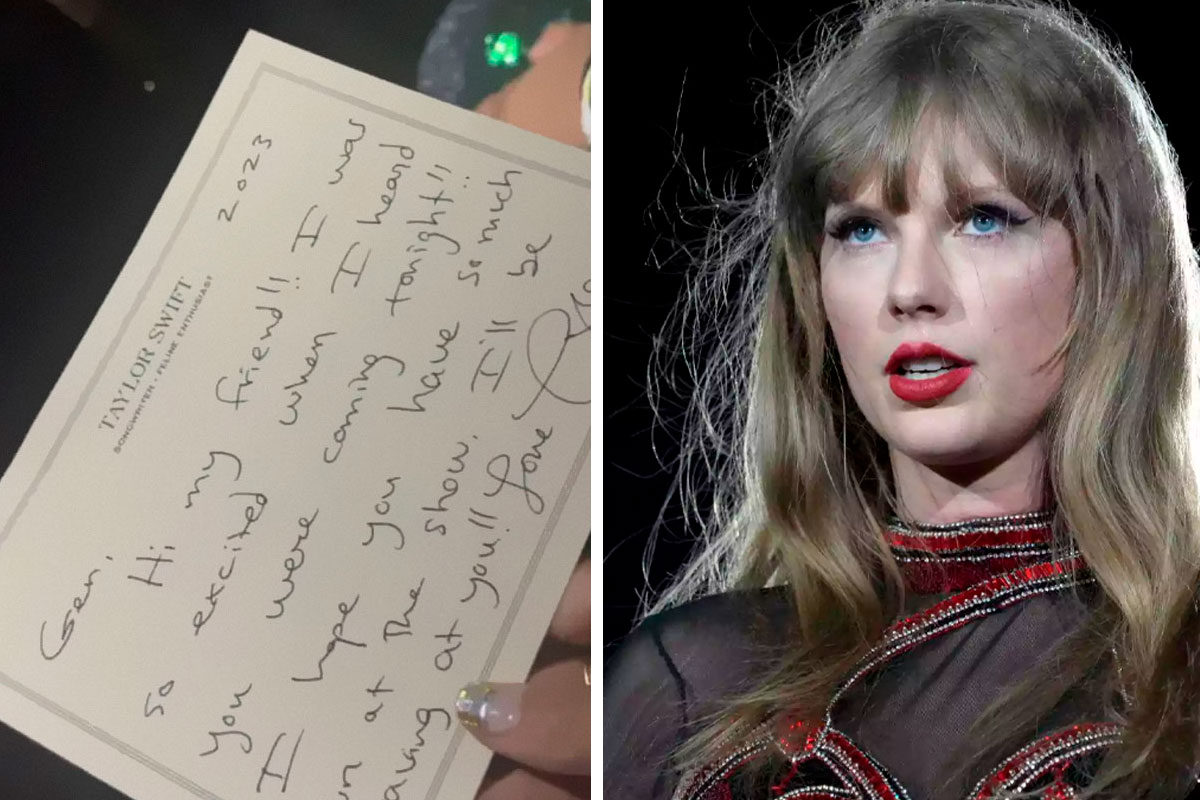 TAYLOR SWIFT
SONGWRITER · FELINE ENTHUSIAST
2023
Hi my friend!! I was
so excited when I heard
you were coming tonight!!
I hope you have so much
un at The show. I'll be
aving at you!!
Love